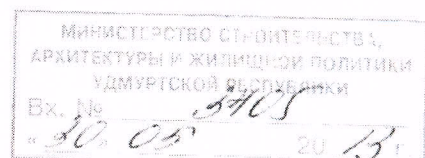 МИНИСТЕРСТВО СТРОИТЕЛЬСТВА,
АРХИТЕКТУРЫ И ЖИЛИЩНОЙ ПОЛИТИКИ
УДМУРТСКОЙ РЕСПУБЛИКИ
Вх. № 3405
" 30 " 05 20 13 г.